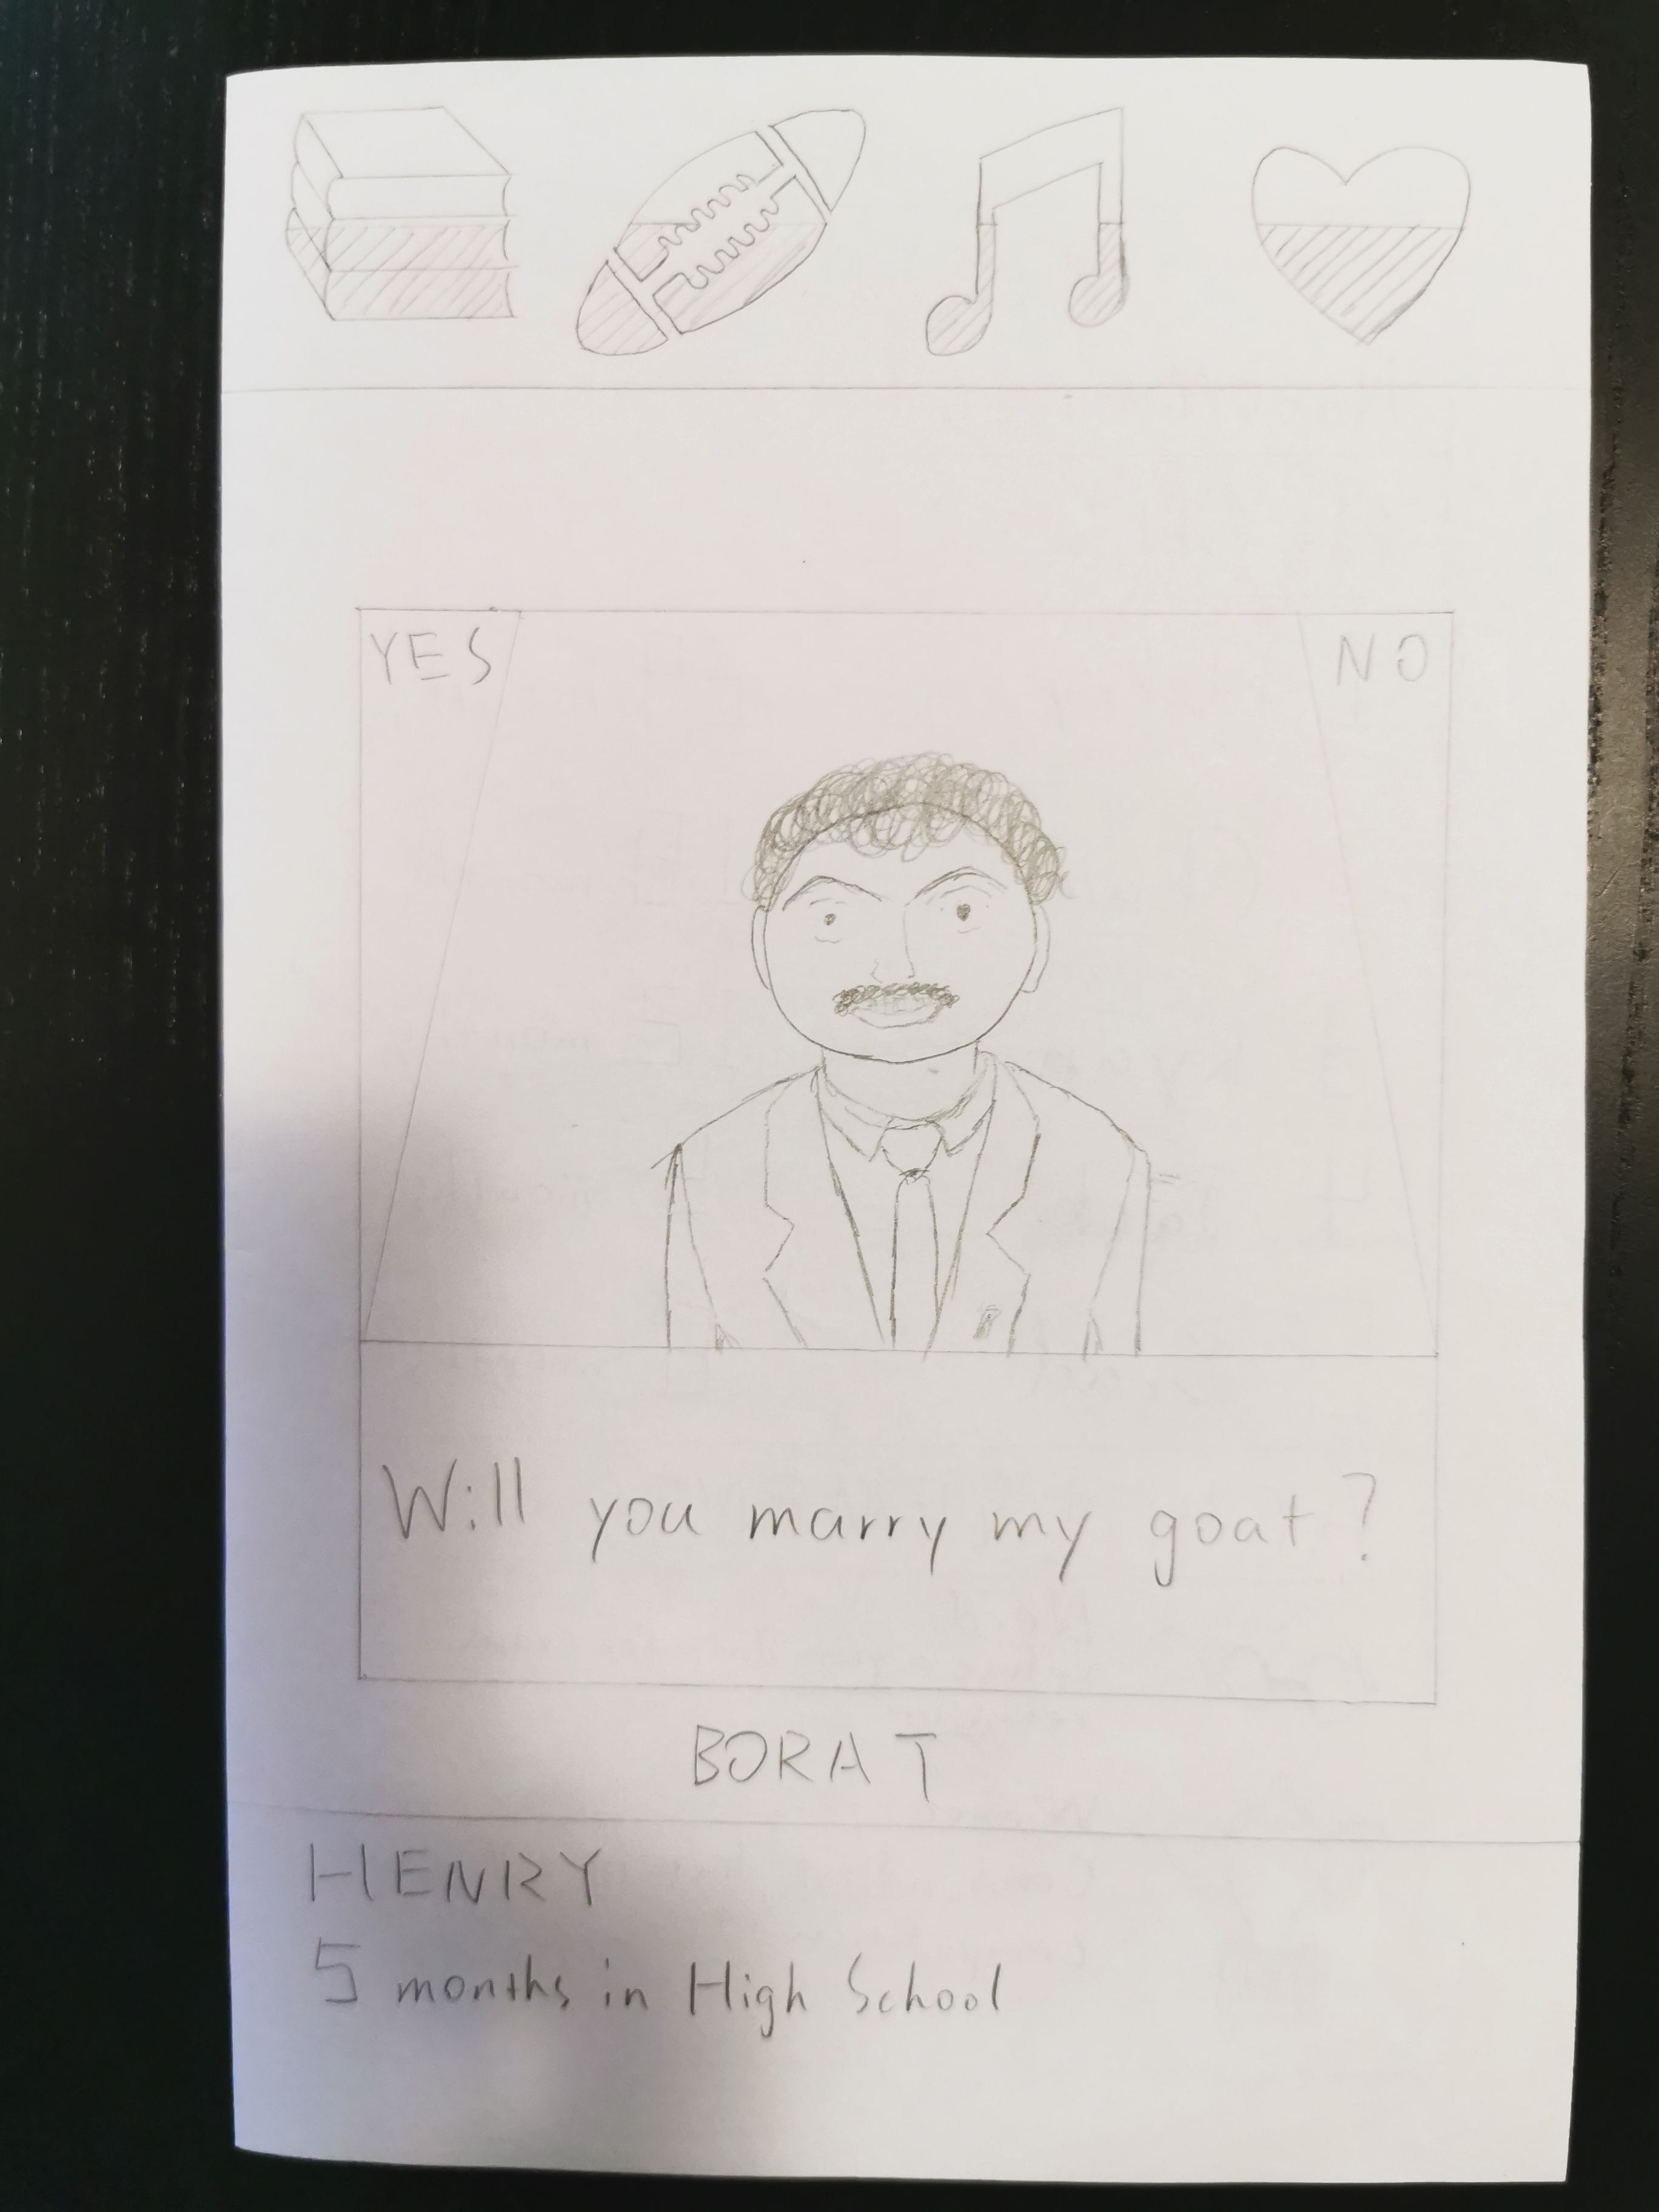 YES
NO
Will you marry my goat?
BORAT
HENRY
5 months in High School